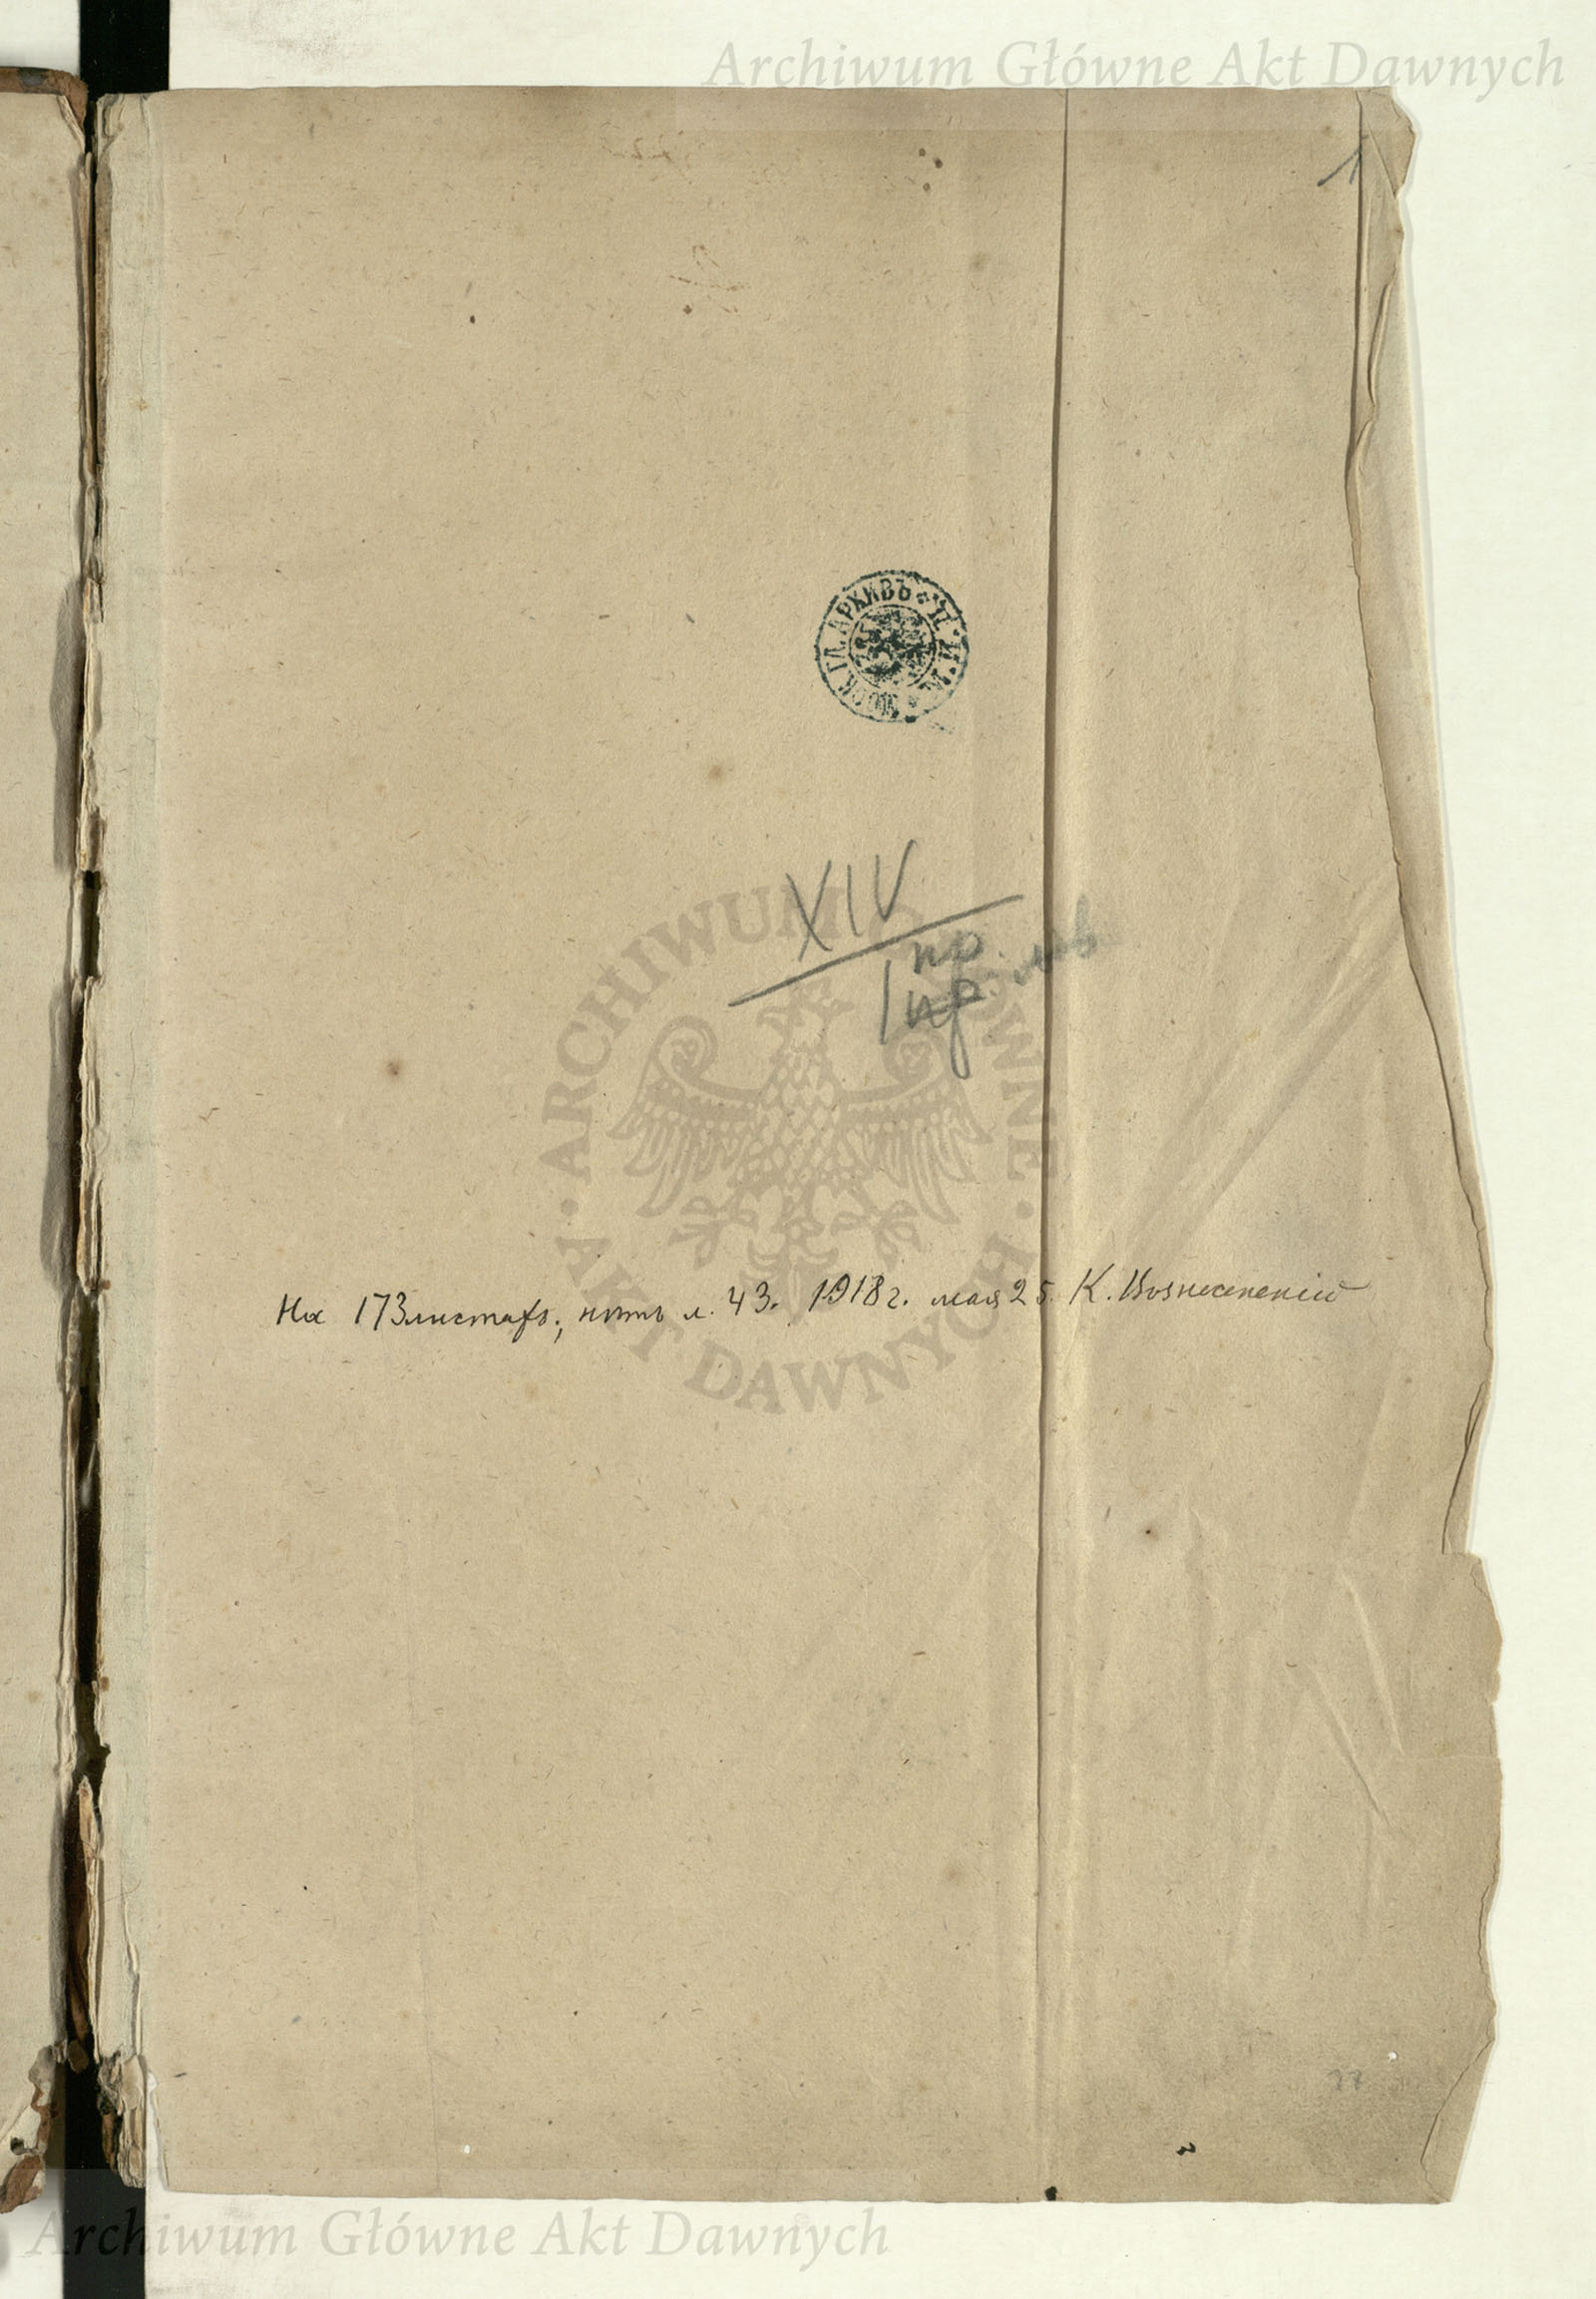 Archiwum Główne Akt Dawnych
1
МОСК. ГЛ. АРХИВЪ * М. И. Д. *
XIV
1 пр.
ARCHIWUM GŁÓWNE · AKT DAWNYCH ·
На 173 листахъ; нѣтъ л. 43. 1918 г. мая 25. К. Вознесенскій
Archiwum Główne Akt Dawnych